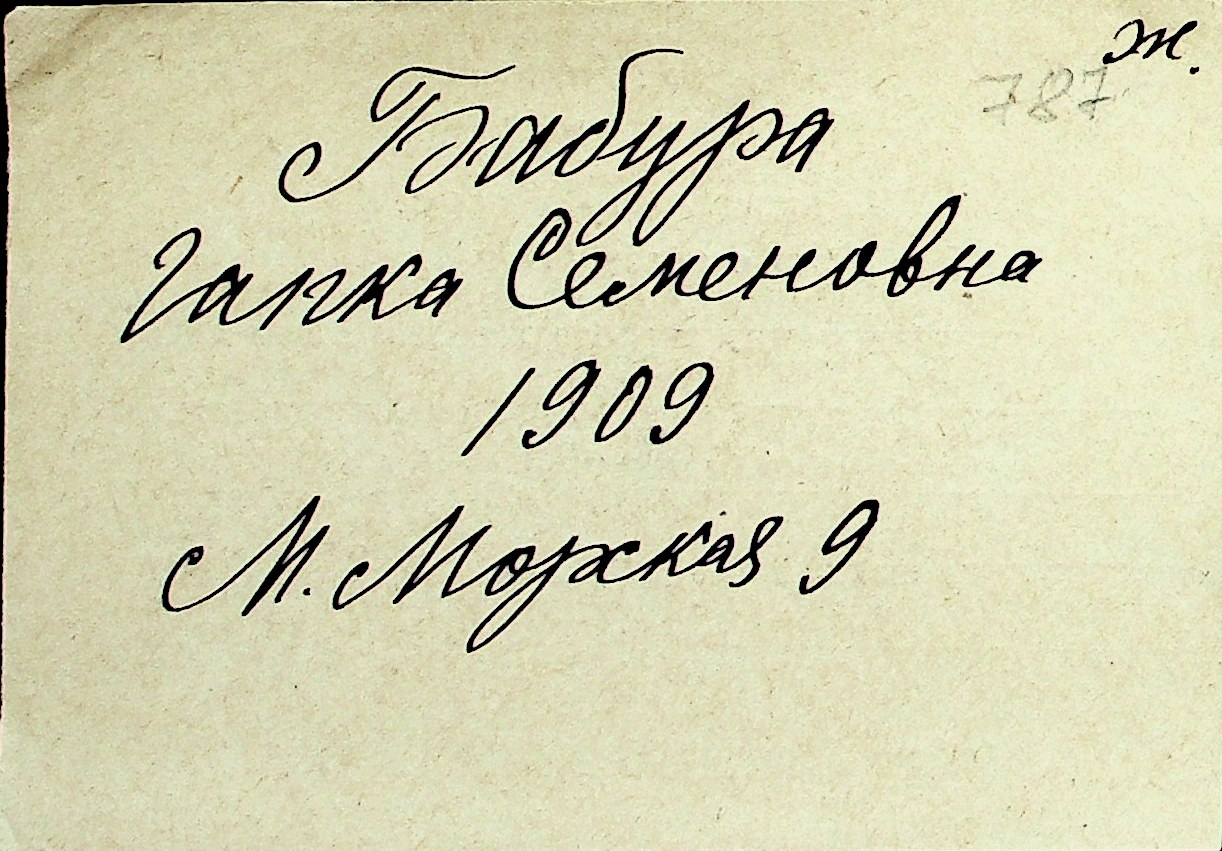 ж.
787
Бабура
Гапка Семеновна
1909
М. Морская 9